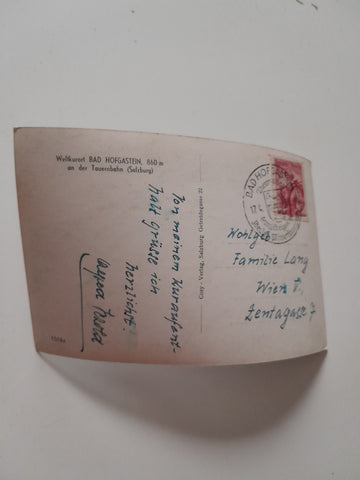 Weltkurort BAD HOFGASTEIN, 860 m
an der Tauernbahn (Salzburg)
Von meinem Kuraufent-
halt grüsse ich
herzlichst
Cosy-Verlag, Salzburg Getreidegasse 22
BAD HOFGASTEIN
Wohlgeb
Familie Lang
Wien V.
Zentagasse 7